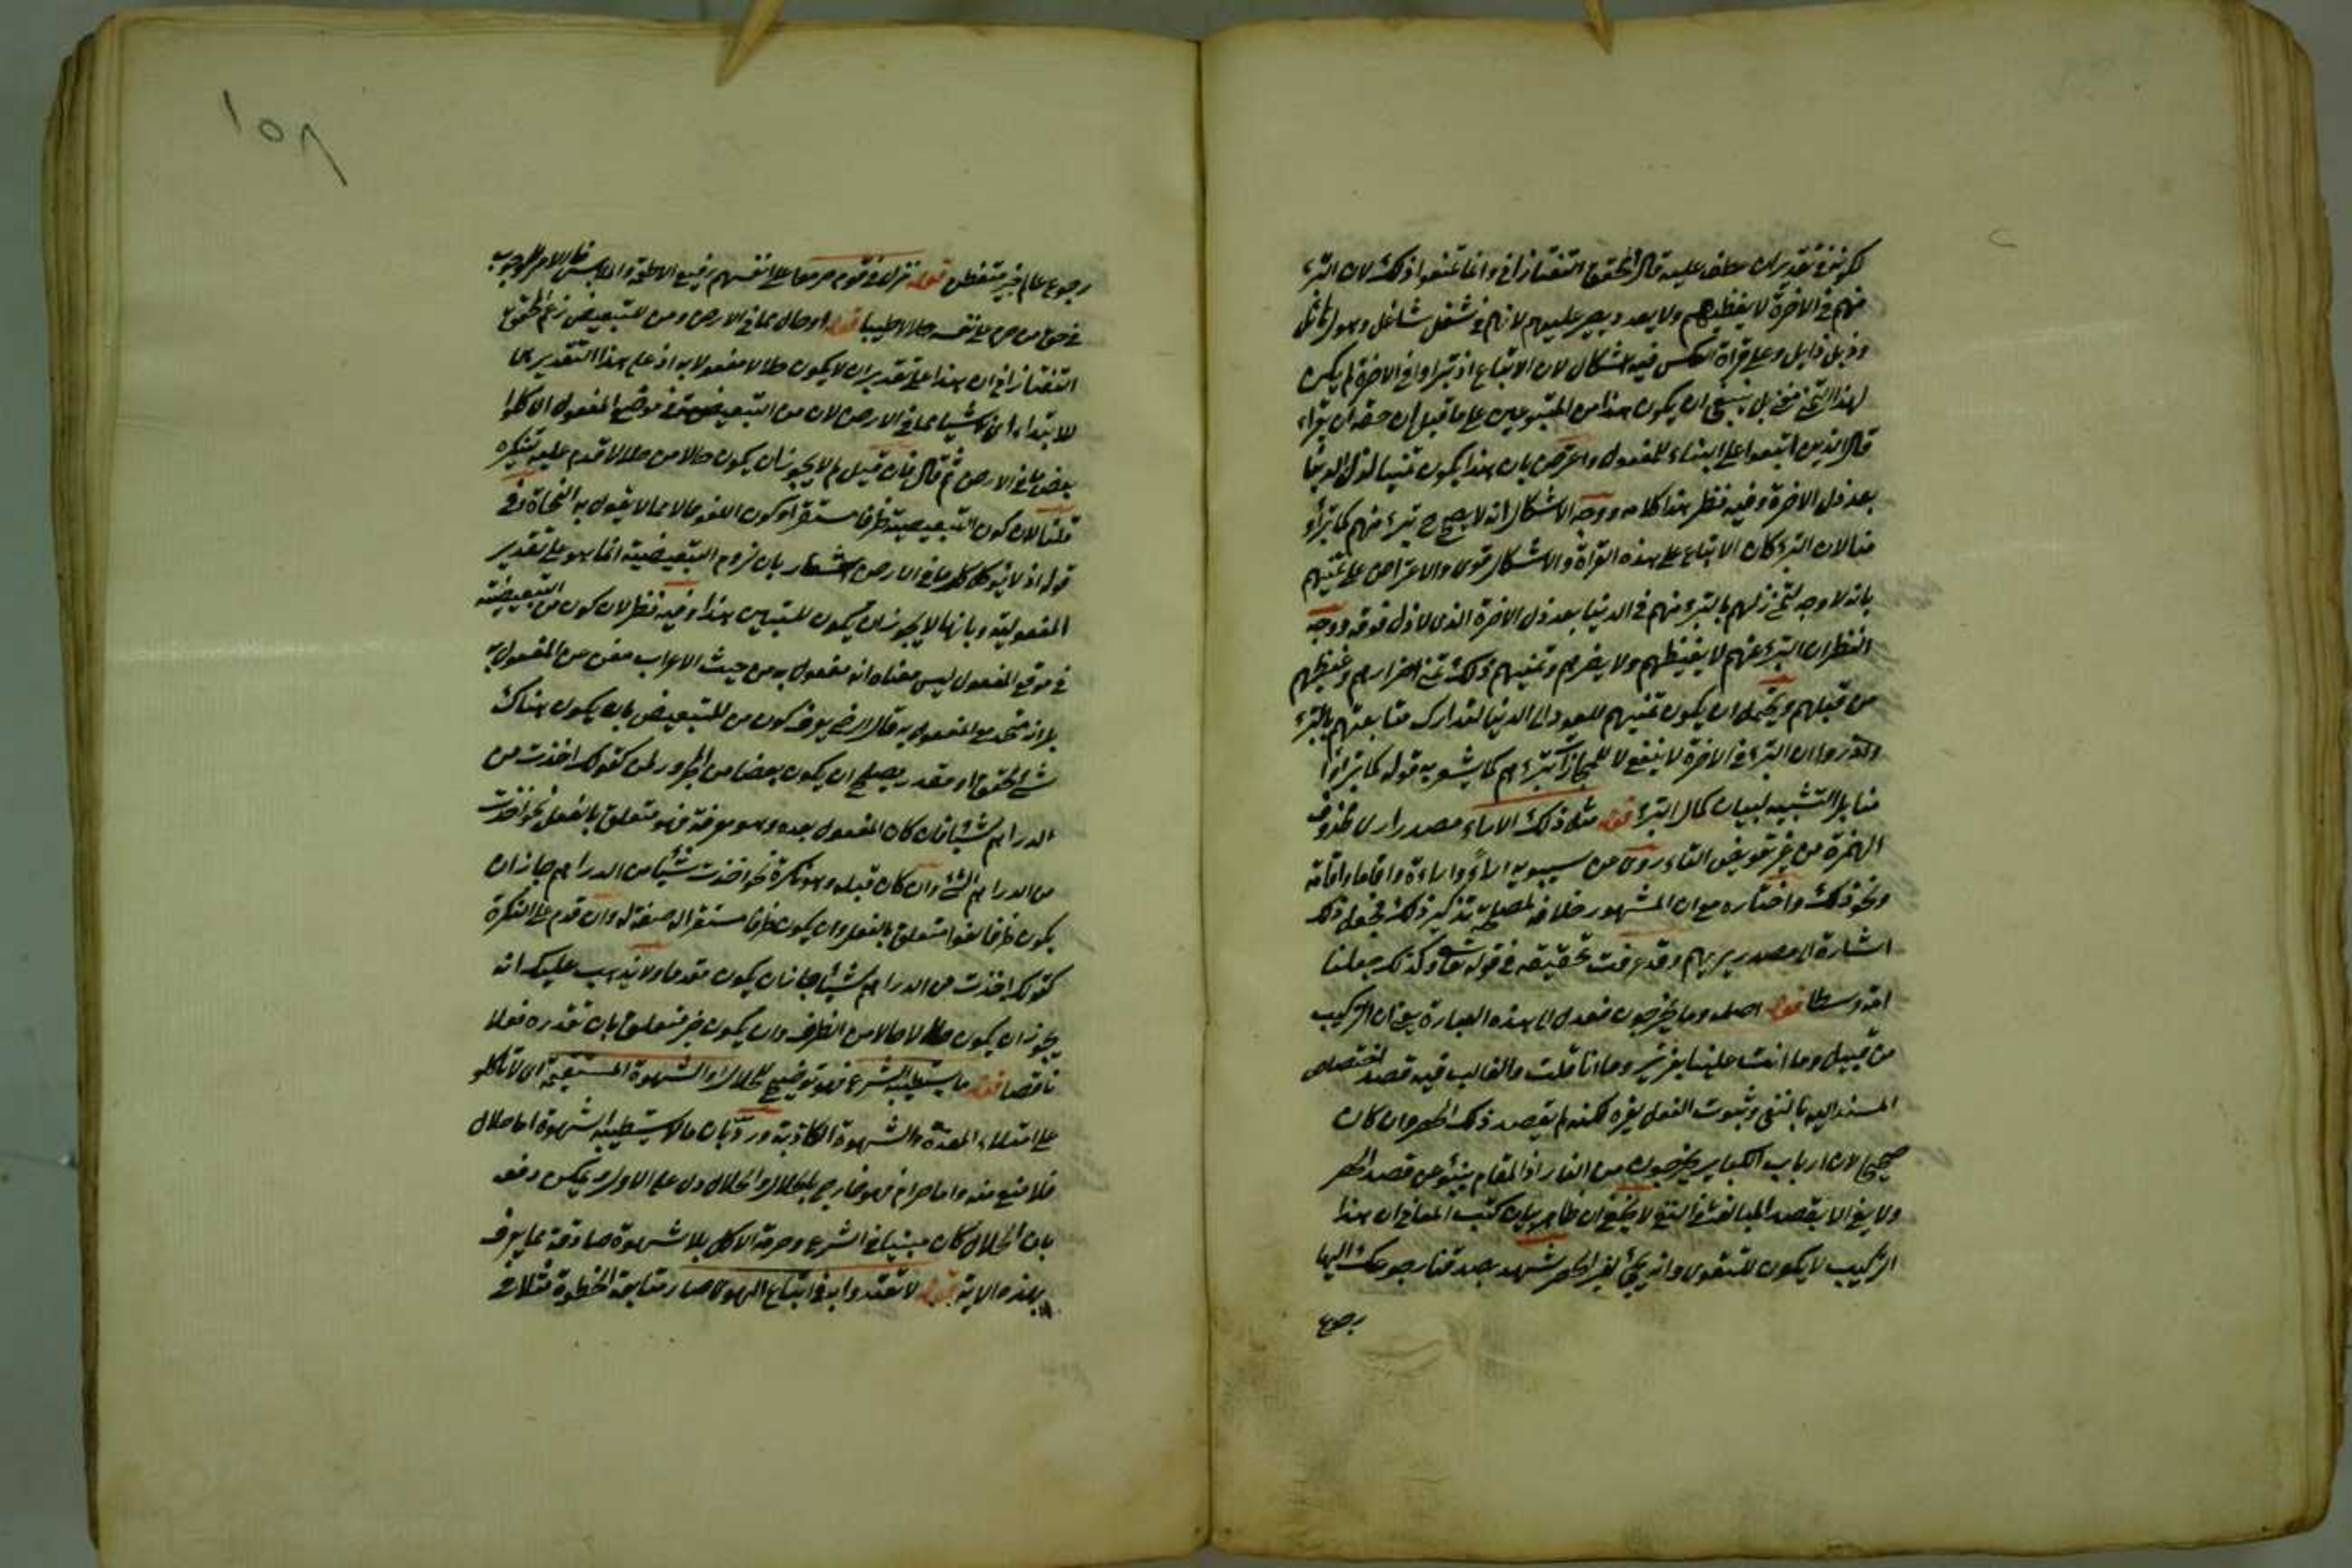 لكونه في تقدير ان عطف عليه قال المحقق التفتازاني وانما تمنوا ذلك لان التبرء
منهم في الاخرة لا يغيظهم ولا يعد ويصير عليهم لانهم في شغل شاغل وهول هائل
وذبل ذابل وعلى قراءة العكس فيه اشكال لان الاتباع اذ تبراوا في الاخرة لم يكن
لهذا التمني مخرج بل ينبغي ان يكون هذا من المتبوعين على ما قيل ان حقه ان يقراء
قال الذين اتبعوا على البناء للمفعول واعترض بان هذا يكون تمنيا لذل الدنيا
بعد ذل الاخرة وفيه نظر هذا كلامه ووجه الاشكال انه لا يصح ح تبرء منهم كما تبرأو
منا لان التبرء كان الاتباع على هذه القراءة والاشكال قوي والاعتراض على تمنيهم
بانه لا وجه لتمني ذلهم بالتبرء منهم في الدنيا بعد ذل الاخرة الذي لا ذل فوقه ووجه
النظر ان التبرء عنهم لا يغيظهم ولا يضرهم وتمنيهم ذلك تمني اضرارهم وغيظهم
من قبلهم ويحتمل ان يكون تمنيهم للعود الى الدنيا لتدارك متابعتهم بالتبرء
وان التبرء في الاخرة لا ينفع لا للمجازات تبرءهم كما يشعر به قوله كما تبراوا
منا بل التشبيه لبيان كمال التبرء قوله مثل ذلك الاراء مصدر ارى محذوف
الهمزة من غير تعويض التاء روى عن سيبويه اراء واراءة واقاما واقامة
ونحو ذلك واختاره مع ان المشهور خلافه لمصلحة تذكير ذلك فجعل ذلك
اشارة الى مصدر يريهم وقد عرفت تحقيقه في قوله تعالى وكذلك جعلناكم
امة وسطا قوله اصله وما يخرجون فعدل الى هذه العبارة يعني ان التركيب
من قبيل وما انت علينا بعزيز وما انا قلت والغالب فيه قصد اختصاص
المسند اليه بالنفي وثبوت الفعل لغيره لكنه لم يقصد ذلك الحصر وان كان
صحيحا لان ارباب الكبائر يخرجون من النار اذ المقام ينبؤ عن قصد الحصر
ولا يفي الا بقصد المبالغة في النفي لا يخفى ان ظاهر بيان كتب المعاني ان هذا
التركيب لا يكون للتقوى وانه يجئ لغير الحصر شهد بصدقنا رجوعك اليها
رجوع
رجوع عالم خبير متفطن قوله نزلت في قوم حرموا على انفسهم رفيع الاطعمة والملابس فالامر للوجوب
في حق من حرم على نفسه حلالا طيبا قوله او حال مما في الارض ومن للتبعيض زعم المحقق
التفتازاني ان هذا على تقدير ان لا يكون حلالا مفعولا به اذ على هذا التقدير من
للابتداء اي شيئا مما في الارض لان من التبعيضية في موضع المفعول اي كلوا
بعض ما في الارض ثم قال فان قيل لم لا يجوز ان يكون حالا من حلالا قدم عليه لتنكيره
قلنا لان كون التبعيضية ظرفا مستقرا وكون اللغو حالا مما لا يقول به النحاة وفي
قوله اذ لا يؤكل كل ما في الارض اشعار بان لزوم التبعيضية انما هو على تقدير
المفعولية وبانها لا يجوز ان يكون للتبيين هذا وفيه نظر لان كون من التبعيضية
في موقع المفعول ليس معناه انه مفعول به من حيث الاعراب مغن عن المفعول به
بل انه متحد مع المفعول به قال الرضي يعرف كون من للتبعيض بان يكون هناك
شئ محقق او مقدر يصلح ان يكون بعضا من المجرور بمن كقولك اخذت من
الدراهم شيئا فان كان المفعول بعده وهو معرفة فهو متعلق بالفعل نحو اخذت
من الدراهم الشئ وان كان قبله وهو نكرة نحو اخذت شيئا من الدراهم جاز ان
يكون ظرفا لغوا متعلق بالفعل وان يكون ظرفا مستقرا له صفة له وان قدم على النكرة
كقولك اخذت من الدراهم شيئا جاز ان يكون مقدما ولا يذهب عليك انه
يجوز ان يكون حلالا حالا من الظرف وان يكون خبر متعلق بان نقدره فعلا
ناقصا قوله ما يستطيبه الشرع فهو توضيح للحلال او الشهوة المستقيمة اي لا تاكلوا
على امتلاء المعدة والشهوة الكاذبة ورد بان ما لا يستطيبه الشهوة اما حلال
فلا منع منه واما حرام فهو خارج بالحلال والحلال دل على الاول ويمكن دفعه
بان الحلال كان مبنيا في الشرع وحرمة الاكل بلا شهوة صادقة مما يعرف
بهذه الاية قوله لا تقتدوا به في اتباع الهوى صار متابعة الخطوة مثلا في
١٥٨